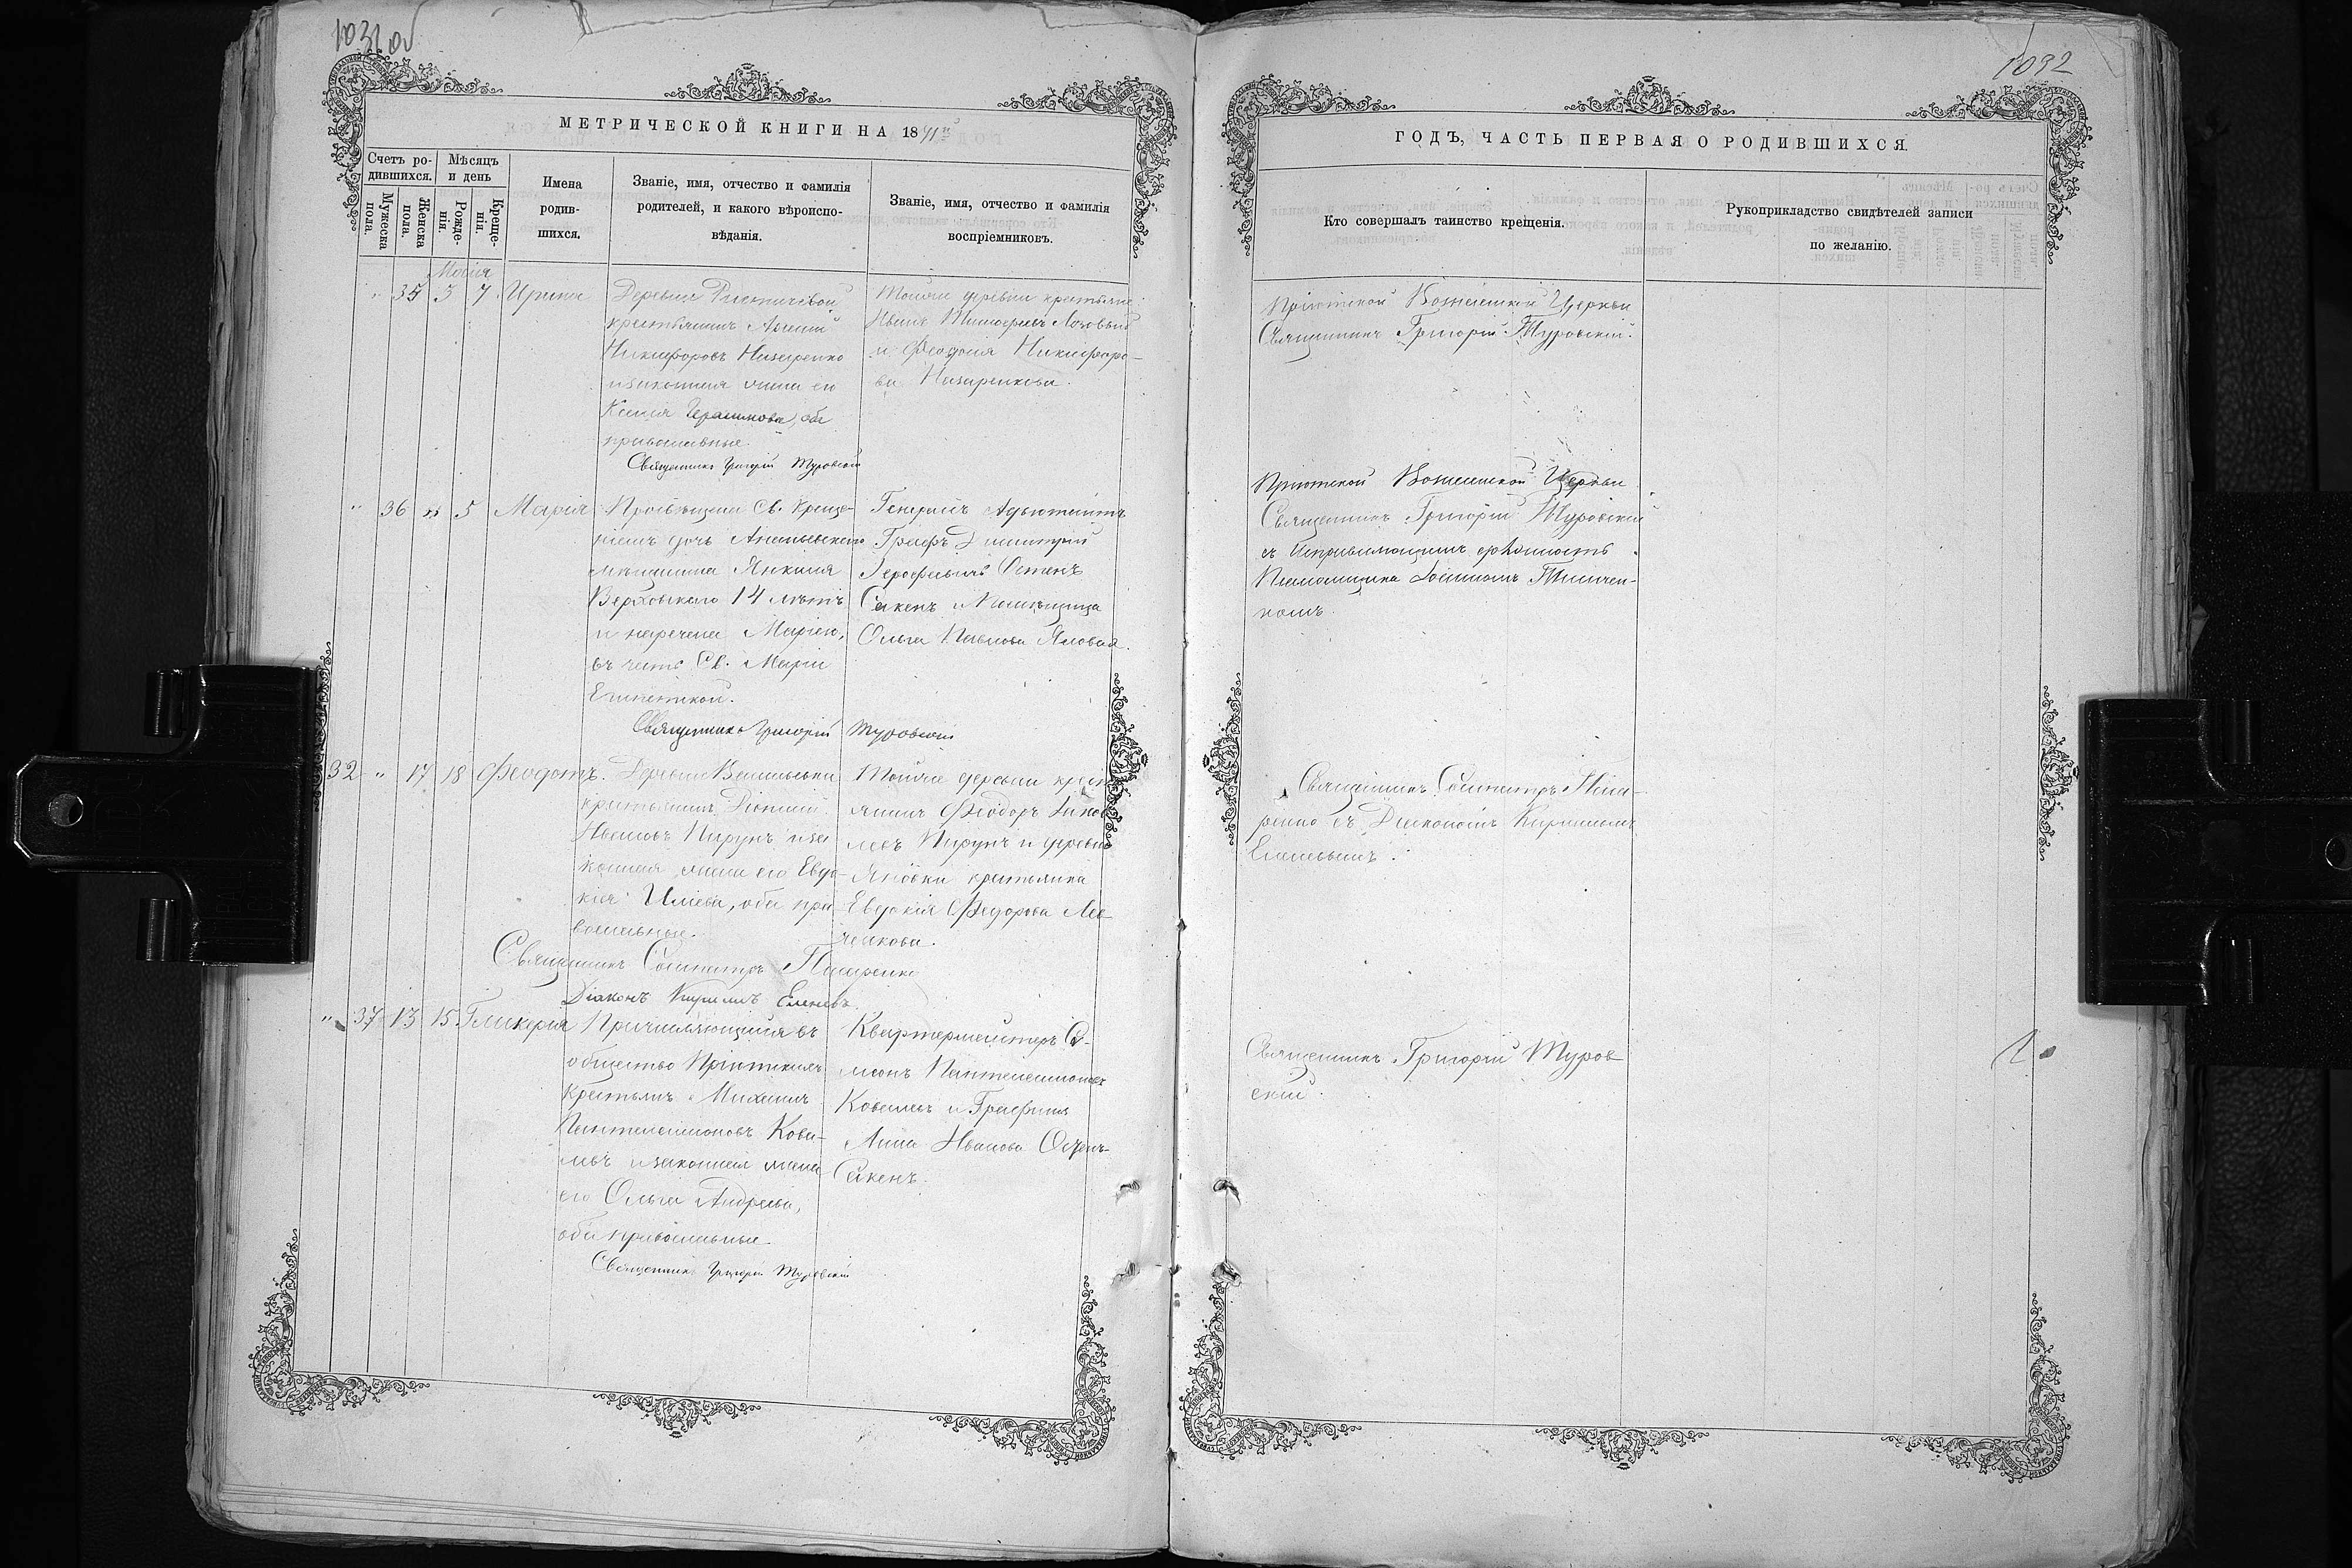 1031 об
МЕТРИЧЕСКОЙ КНИГИ НА 18
Счетъ ро-
дившихся.
Мѣсяцъ
и день
Мужеска
пола.
Женска
пола.
Рожде-
нія.
Креще-
нія.
Имена
родив-
шихся.
Званіе, имя, отчество и фамилія
родителей, и какого вѣроиспо-
вѣданія.
Званіе, имя, отчество и фамилія
воспріемниковъ.
35 5 7 Ирина
Деревни
крестьянинъ
Никифоровъ Назаренко
и законная жена его
Ксенія Герасимова, оба
православные.
Священникъ Григорій Туровскій
Тойже деревни крестьяне
Иванъ Тимофеевъ Лозовый
и Феодосія Никифоро-
ва Назаренкова.
" 36 " 5 Марія
Просвѣщена Св. Креще-
ніемъ дочь Ананьевскаго
мѣщанина Янкеля
Верховскаго 14 лѣтъ
и наречена Маріею,
въ честь Св. Маріи
Египетской.
Священникъ Григорій Туровскій
Генералъ Адъютантъ
Графъ Димитрій
Ерофеевичъ Остенъ
Сакенъ и Помѣщица
Ольга Павлова Яловая.
32 " 17 18 Феодотъ.
Деревни Васильевки
крестьянинъ Діонисій
Ивановъ Пирунъ и за
конная жена его Евдо-
кія Иліева, оба пра
вославные.
Священникъ Состратъ Писаренко
Діаконъ Кириллъ Еленевъ.
Тойже деревни крест
янинъ Феодоръ Іако
левъ Пирунъ и деревни
Яновки крестьянка
Евдокія Федорова Ле
ченкова.
" 37 13 15 Гликерія
Причисляющійся въ
общество Пріютскихъ
Крестьянъ Михаилъ
Пантелеимоновъ Кова-
левъ и законная жена
его Ольга Андреева,
оба православные.
Священникъ Григорій Туровскій
Квартермейстеръ Си-
меонъ Пантелеимоновъ
Ковалевъ и Графиня
Анна Иванова Остенъ-
Сакенъ.
1032
ГОДЪ, ЧАСТЬ ПЕРВАЯ О РОДИВШИХСЯ.
Кто совершалъ таинство крещенія.
Рукоприкладство свидѣтелей записи
по желанію.
Пріютской Церкви
Священникъ Григорій Туровскій.
Пріютской Церкви
Священникъ Григорій Туровскій
съ Исправляющимъ должность
Псаломщика
комъ.
Священникъ Состратъ Писа-
ренко съ Діакономъ Кирилломъ
Еленевымъ.
Священникъ Григорій Туров
скій.